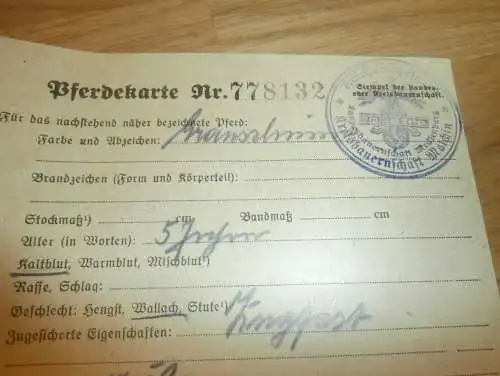 Pferdekarte Nr. 778132
Stempel der Landes-
oder Kreisbauernschaft.
Kreisbauernschaft Malchin
Für das nachstehend näher bezeichnete Pferd:
Farbe und Abzeichen:
Brandzeichen (Form und Körperteil):
Stockmaß¹) cm Bandmaß cm
Alter (in Worten): 5 Jahre
Kaltblut, Warmblut, Mischblut¹)
Rasse, Schlag:
Geschlecht: Hengst, Wallach, Stute¹)
Zugesicherte Eigenschaften: Zugfest